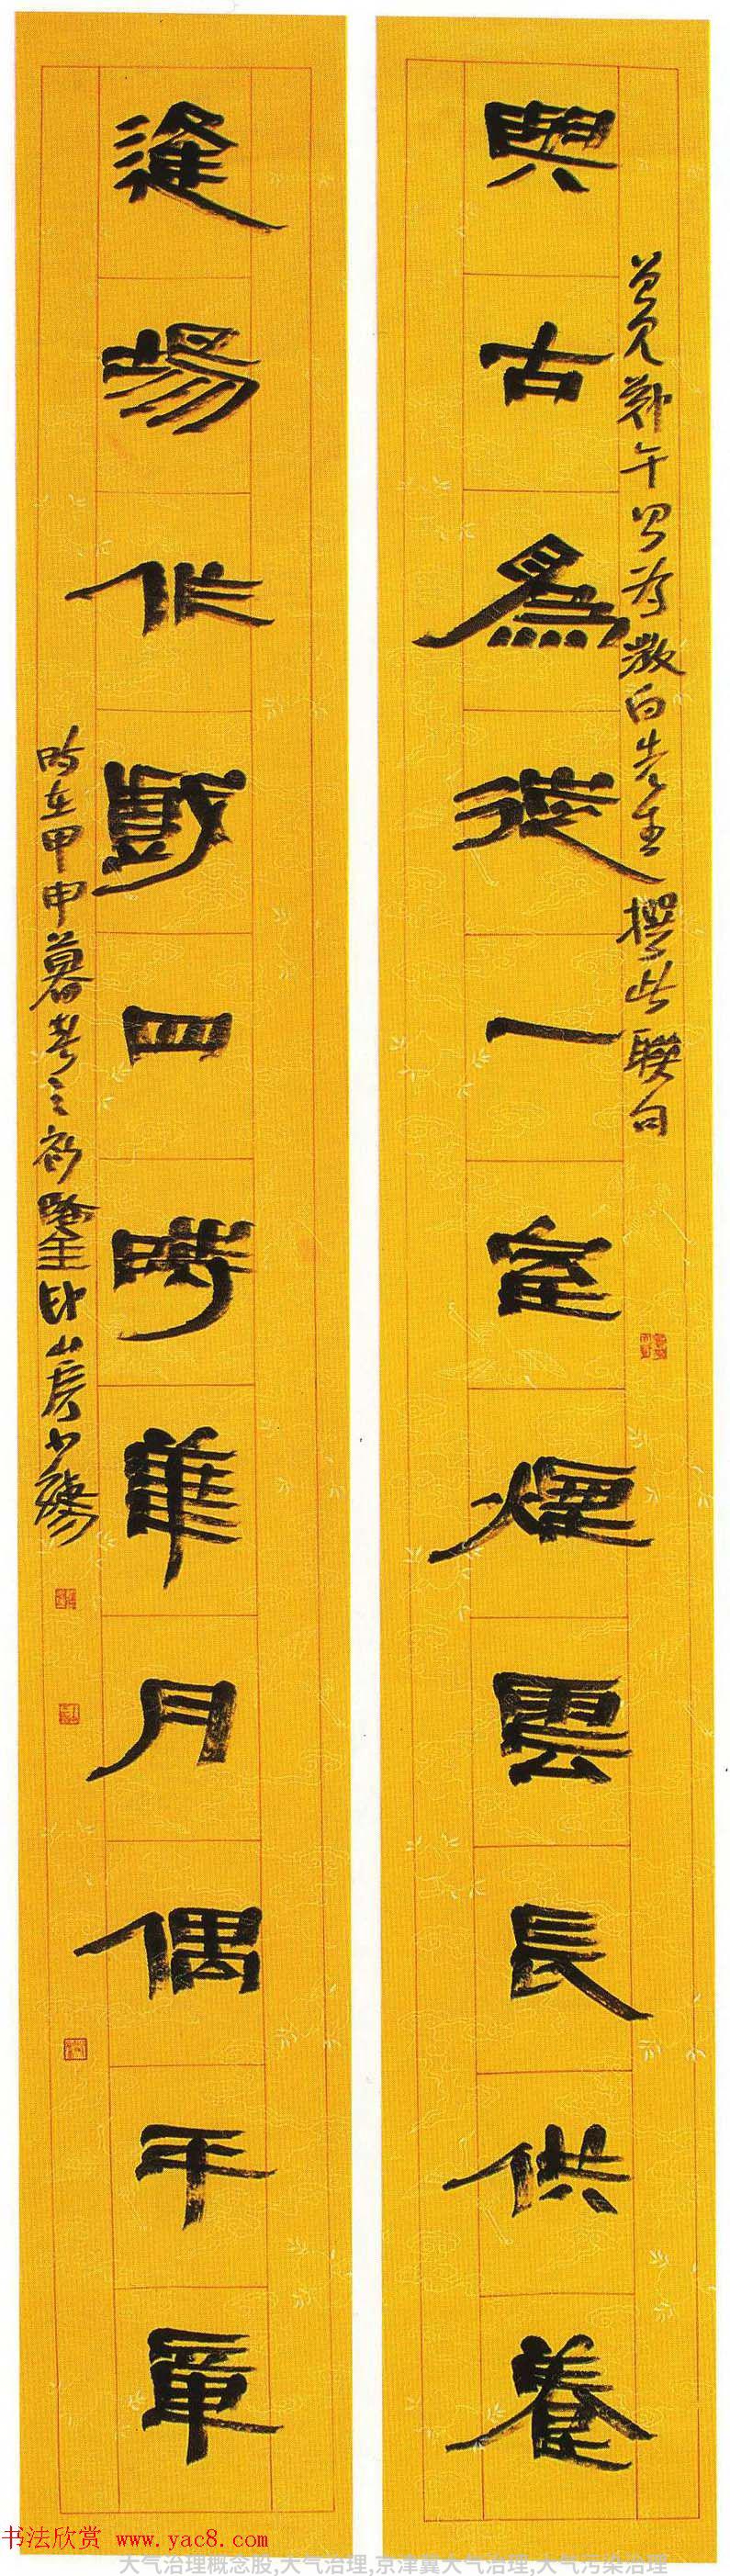 曾見鄭午昌为散白先生撰此聯句
與古爲徒一室煙雲長供養
逢場作戲四時華月偶平章
时在甲申暮春之初鑒印山房
书法欣赏 www.yac8.com
大气治理概念股,大气治理,京津冀大气治理,大气污染治理